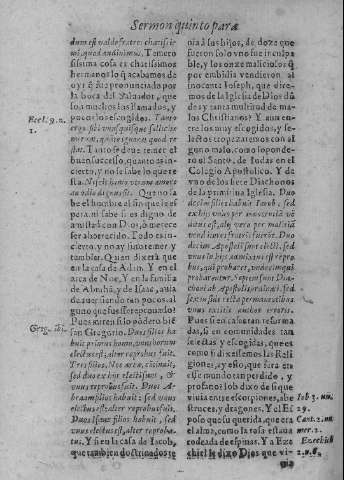 Sermon quinto para
dum est valde fratres charissi
mi, quod audivimus. Temero
sissima cosa es charissimos
hermanos lo q̃ acabamos de
oyr q̃ sea pronunciado por
la boca del Salvador, que
son muchos los llamados, y
pocos los escogidos. Tanto
Eccl. 9. n.
1.
ergo sibi unusquisque sollicite
metuat, quãto ignorat quod re
stat. Tanto se deve temer el
buen successo, quanto es in-
cierto, y no se sabe lo que re
sta. Nescit homo utrum amore
an odio dignus sit. Que no sa
be el hombre al fin que le es
pera, ni sabe si es digno de
amistad con Dios, o merece
ser aborrecido. Todo es in-
cierto, y no ay sino temer, y
temblar. Quien dixera que
en la casa de Adan, Y en el
arca de Noe, Y en la familia
de Abrahã, y de Isaac, avia
de aver siendo tan pocos, al
guno que fuesse reprovado?
Pues miren si lo pòdero biẽ
Greg. ibi.
san Gregorio. Duos filios ha
buit primus homo, unus horum
electus est, alter reprobus fuit.
Tres filios, Noe arca, cõtinuit,
sed duo extitere electissimi, &
unus reprobus fuit. Duos A-
braam filios habuit: sed unus
electus est: alter reprobus fuit.
Duos Isaac filios habuit, sed
unus electus est, alter reproba-
tus. Y si en la casa de Iacob,
que tambien doctrinados te
nia à sus hijos, de doze que
fueron solo uno fue inculpa
ble, y los onze maliciosos: q̃
por embidia vendieron al
inocente Ioseph, que dire-
mos de la Iglesia de Dios dõ
de ay tanta multitud de ma-
los Christianos? Y aun entre
los muy escogidos, y se-
lectos tropeçaremos con al
guno malo, como lo ponde-
ro el Santo, de Iudas en el
Colegio Apostolico. Y de
uno de los siete Diachonos
de la primitiva Iglesia. Duo
decim filios habuit Iacob: sed
ex his unus per innocentiã vẽ
ditus est, alij vero per malitiam
venditores fratris fuerũt. Duo
decim Apostoli sunt electi, sed
unus in his admixtus est repro-
bus, qui probaret, undecim qui
probarentur. Septem sunt Dia-
choni ab Apostolis ordinati, sed
sex in fide recta permanẽt, alibus
unus extitit author erroris.
Pues si en casas tan reforma
das, si en comunidades tan
selectas y escogidas, que es
como si dixessemos las Reli
giones, ay esto, que sera en
esse mundo tan perdido, y
profano? Iob dixo de si que
vivia entre escorpiones, abe
Iob 3. nu.
29.
struces, y dragones. Y el Es
poso que su querida, que era
Cant. 2. nu
mer. 2.
el alma, como la rosa estava
rodeada de espinas. Y a Eze
Ezechiel
2. n. 6.
chiel le dixo Dios que vi-
via